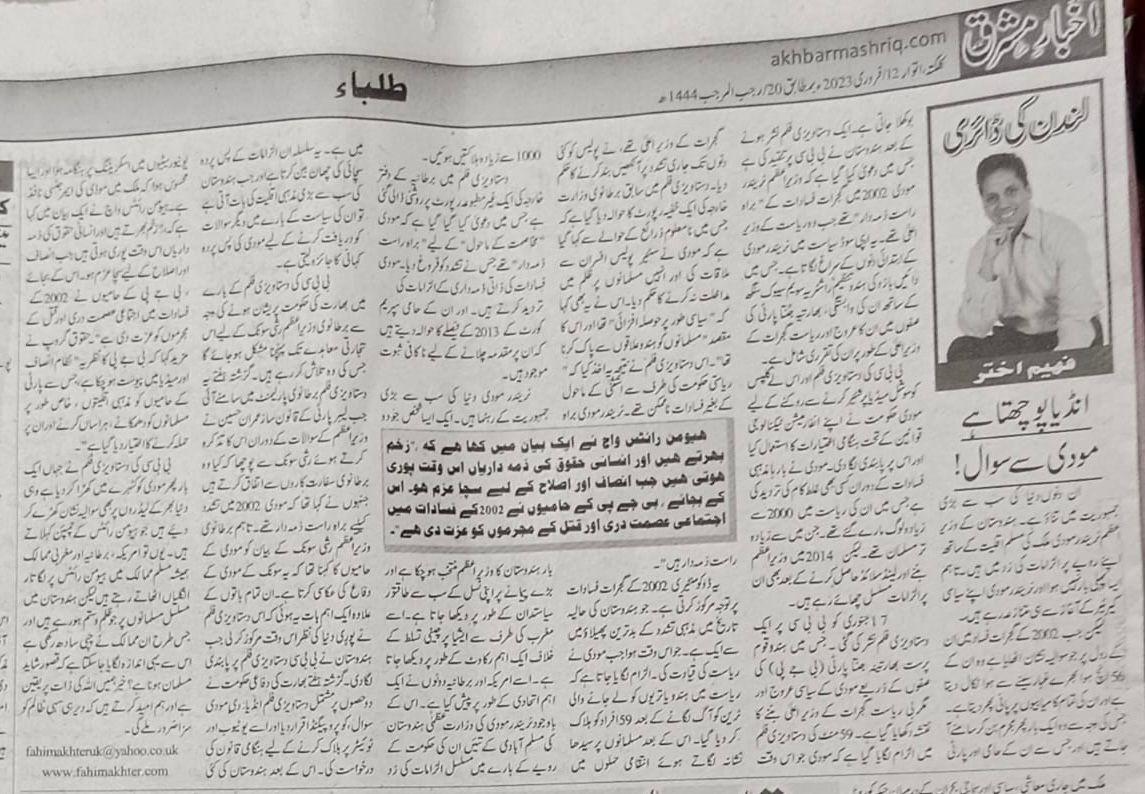 اخبار مشرق
akhbarmashriq.com
کلکتہ، اتوار 12/فروری 2023ء بمطابق 20/رجب المرجب 1444ھ
طلباء
لندن کی ڈائری
فہیم اختر
انڈیا پوچھتا ہے
مودی سے سوال!
ان دنوں دنیا کی سب سے بڑی
جمہوریت میں تناؤ ہے۔ ہندوستان کے وزیر
اعظم نریندر مودی ملک کی مسلم اقلیت کے ساتھ
اپنے رویے پر الزامات کی زد میں ہیں۔ تاہم
ایسا پہلی بار نہیں ہوا اور نریندر مودی اپنے سیاسی
کیریئر کے آغاز سے ہی متنازعہ رہے ہیں۔
لیکن جب 2002 کے گجرات فساد میں ان
کے رول پر جو سوالیہ نشان اٹھایا ہے وہ ان کے
56 انچ ہوا بھرے غبارہ سینے سے ہوا نکال دیتا
ہے اور ان کی تمام کامیابیوں پر پانی پھیر دیتا ہے۔
جس کی وجہ سے وہ ایک بار پھر مجرم بن کر سامنے آ
جاتے ہیں اور جس سے ان کے حامی اور پارٹی
بوکھلا جاتی ہے۔ ایک دستاویزی فلم نشر ہونے
کے بعد ہندوستان نے بی بی سی پر تنقید کی ہے
جس میں دعویٰ کیا گیا ہے کہ وزیر اعظم نریندر
مودی 2002 میں گجرات فسادات کے "براہ
راست ذمہ دار" تھے جب وہ ریاست کے وزیر
اعلیٰ تھے۔ یہ اپی سوڈ سیاست میں نریندر مودی
کے ابتدائی دنوں کے سراغ لگاتا ہے۔ جس میں
دائیں بازو کی ہندو تنظیم راشٹریہ سویم سیوک سنگھ
کے ساتھ ان کی وابستگی، بھارتیہ جنتا پارٹی کی
صفوں میں ان کا عروج اور ریاست گجرات کے
وزیر اعلیٰ کے طور پر ان کی تقرری شامل ہے۔
بی بی سی کی دستاویزی فلم اور اس کے کلپس
کو سوشل میڈیا پر شیئر کرنے سے روکنے کے لیے
مودی حکومت نے اپنے انفارمیشن ٹیکنالوجی
قوانین کے تحت ہنگامی اختیارات کا استعمال کیا
اور اس پر پابندی لگا دی۔ مودی نے بارہا مذہبی
فسادات کے دوران کسی بھی غلط کام کی تردید کی
ہے جس میں ان کی ریاست میں 2000 سے
زیادہ لوگ مارے گئے تھے۔ جن میں سے زیادہ
تر مسلمان تھے۔ لیکن 2014 میں وزیر اعظم
بننے اور لینڈ سلائڈ حاصل کرنے کے بعد بھی ان
پر الزامات مسلسل چھائے رہے ہیں۔
17 جنوری کو بی بی سی پر ایک
دستاویزی فلم نشر کی گئی۔ جس میں ہندو قوم
پرست بھارتیہ جنتا پارٹی (بی جے پی) کی
صفوں کے ذریعے مودی کے سیاسی عروج اور
مغربی ریاست گجرات کے وزیر اعلیٰ بننے کا
نقشہ دکھایا گیا ہے۔ 59 منٹ کی دستاویزی فلم
میں الزام لگایا گیا ہے کہ مودی جو اس وقت
گجرات کے وزیر اعلیٰ تھے، نے پولیس کو کئی
دنوں تک جاری تشدد پر آنکھیں بند کرنے کا حکم
دیا۔ دستاویزی فلم میں سابق برطانوی وزارت
خارجہ کی ایک خفیہ رپورٹ کا حوالہ دیا گیا ہے کہ
جس میں نامعلوم ذرائع کے حوالے سے کہا گیا
ہے کہ مودی نے سینئر پولیس افسران سے
ملاقات کی اور انہیں مسلمانوں پر ظلم میں
مداخلت نہ کرنے کا حکم دیا۔ اس نے یہ بھی کہا
کہ "سیاسی طور پر حوصلہ افزائی" تھا اور اس کا
مقصد "مسلمانوں کو ہندو علاقوں سے پاک کرنا
تھا"۔ اس دستاویزی فلم نے نتیجہ اخذ کیا کہ "
ریاستی حکومت کی طرف سے استثنیٰ کے ماحول
کے بغیر فسادات ناممکن تھے۔ نریندر مودی براہ
راست ذمہ دار ہیں"۔
یہ ڈاکومنٹری 2002 کے گجرات فسادات
پر توجہ مرکوز کرتی ہے۔ جو ہندوستان کی حالیہ
تاریخ میں مذہبی تشدد کے بدترین پھیلاؤ میں
سے ایک ہے۔ جو اس وقت ہوا جب مودی نے
ریاست کی قیادت کی۔ الزام لگایا جاتا ہے کہ
ریاست میں ہندو یاتریوں کو لے جانے والی
ٹرین کو آگ لگانے کے بعد 59 افراد کو ہلاک
کر دیا گیا۔ اس کے بعد مسلمانوں پر سیدھا
نشانہ لگاتے ہوئے انتقامی حملوں میں
1000 سے زیادہ ہلاکتیں ہوئیں۔
دستاویزی فلم میں برطانیہ کے دفتر
خارجہ کی ایک غیر مطبوعہ رپورٹ پر روشنی ڈالی گئی
ہے جس میں دعویٰ کیا گیا ہے کہ مودی
"مخاصمت کے ماحول" کے لیے "براہ راست
ذمہ دار" تھے جس نے تشدد کو فروغ دیا۔ مودی
فسادات کی ذاتی ذمہ داری کے الزامات کی
تردید کرتے ہیں۔ اور ان کے حامی سپریم
کورٹ کے 2013 کے فیصلے کا حوالہ دیتے ہیں
کہ ان پر مقدمہ چلانے کے لیے ناکافی ثبوت
موجود ہیں۔
نریندر مودی دنیا کی سب سے بڑی
جمہوریت کے رہنما ہیں۔ ایک ایسا شخص جو دو
ہیومن رائٹس واچ نے ایک بیان میں کہا ہے کہ، "زخم
بھرتے ہیں اور انسانی حقوق کی ذمہ داریاں اس وقت پوری
ہوتی ہیں جب انصاف اور اصلاح کے لیے سچا عزم ہو۔ اس
کے بجائے، بی جے پی کے حامیوں نے 2002 کے فسادات میں
اجتماعی عصمت دری اور قتل کے مجرموں کو عزت دی ہے"۔
بار ہندوستان کا وزیر اعظم منتخب ہو چکا ہے اور
بڑے پیمانے پر اپنی نسل کے سب سے طاقتور
سیاستدان کے طور پر دیکھا جاتا ہے۔ اسے
مغرب کی طرف سے ایشیا پر چینی تسلط کے
خلاف ایک اہم رکاوٹ کے طور پر دیکھا جاتا
ہے۔ اسے امریکہ اور برطانیہ دونوں نے ایک
اہم اتحادی کے طور پر پیش کیا ہے۔ اس کے
باوجود نریندر مودی کی وزارت عظمیٰ ہندوستان
کی مسلم آبادی کے تئیں ان کی حکومت کے
رویے کے بارے میں مسلسل الزامات کی زد
میں ہے۔ یہ سلسلہ ان الزامات کے پس پردہ
سچائی کی چھان بین کرتا ہے اور جب ہندوستان
کی سب سے بڑی مذہبی اقلیت کی بات آتی ہے
تو ان کی سیاست کے بارے میں دیگر سوالات
کو دریافت کرنے کے لیے مودی کی پس پردہ
کہانی کا جائزہ لیتی ہے۔
بی بی سی کی دستاویزی فلم کے بارے
میں بھارت کی حکومت پریشان ہونے کی وجہ
سے برطانوی وزیر اعظم رشی سونک کے لیے اس
تجارتی معاہدے تک پہنچنا مشکل ہو جائے گا
جس کی وہ تلاش کر رہے ہیں۔ گزشتہ ہفتے یہ
دستاویزی فلم برطانوی پارلیمنٹ میں سامنے آئی
جب لیبر پارٹی کے قانون ساز عمران حسین نے
وزیر اعظم کے سوالات کے دوران اس کا تذکرہ
کرتے ہوئے رشی سونک سے پوچھا کہ کیا وہ
برطانوی سفارت کاروں سے اتفاق کرتے ہیں
جنہوں نے کہا تھا کہ مودی 2002 میں تشدد
کیلئے براہ راست ذمہ دار تھے۔ تاہم برطانوی
وزیر اعظم رشی سونک کے بیان کو مودی کے
حامیوں کا کہنا تھا کہ یہ سونک کے مودی کے
دفاع کی عکاسی کرتا ہے۔ ان تمام باتوں کے
علاوہ ایک اہم بات یہ ہوئی کہ اس دستاویزی فلم
نے پوری دنیا کی نظر اس وقت مرکوز کر لی جب
ہندوستان نے بی بی سی دستاویزی فلم پر پابندی
لگا دی۔ گزشتہ ہفتے بھارت کی دفاعی حکومت نے
دو حصوں پر مشتمل دستاویزی فلم انڈیا: دی مودی
سوال، کو پروپیگنڈا قرار دیا اور اسے یوٹیوب اور
ٹوئیٹر پر بلاک کرنے کے لیے ہنگامی قانون کی
درخواست کی۔ اس کے بعد ہندوستان کی کئی
یونیورسٹیوں میں اسکریننگ پر ہنگامہ ہوا اور ایسا
محسوس ہوا کہ ملک میں مودی کی ایمرجنسی نافذ
ہے۔ ہیومن رائٹس واچ نے ایک بیان میں کہا
ہے کہ، "زخم بھرتے ہیں اور انسانی حقوق کی ذمہ
داریاں اس وقت پوری ہوتی ہیں جب انصاف
اور اصلاح کے لیے سچا عزم ہو۔ اس کے بجائے
، بی جے پی کے حامیوں نے 2002 کے
فسادات میں اجتماعی عصمت دری اور قتل کے
مجرموں کو عزت دی ہے"۔ حقوق گروپ نے
مزید کہا کہ بی جے پی کا نظریہ "نظام انصاف
اور میڈیا میں پیوست ہو چکا ہے، جس سے پارٹی
کے حامیوں کو مذہبی اقلیتوں، خاص طور پر
مسلمانوں کو دھمکانے، ہراساں کرنے اور ان پر
حملہ کرنے کا اختیار دیا گیا ہے"۔
بی بی سی کی دستاویزی فلم نے جہاں ایک
بار پھر مودی کو کٹہرے میں کھڑا کر دیا ہے وہی
دنیا بھر کے لیڈروں پر بھی سوالیہ نشان کھڑے کر
دیے ہیں جو ہیومن رائٹس کے چمپئن کہلاتے
ہیں۔ یوں تو امریکہ، برطانیہ اور مغربی ممالک
ہمیشہ مسلم ممالک میں ہیومن رائٹس پر لگاتار
انگلیاں اٹھاتے رہتے ہیں لیکن ہندوستان میں
مسلسل مسلمانوں پر جو ظلم و ستم ہو رہے ہیں اور
جس طرح ان ممالک نے چپی سادھ رکھی ہے
اس سے یہی اندازہ لگایا جا سکتا ہے کہ قصور شاید
مسلمان ہونا ہے؟ خیر ہمیں اللہ کی ذات پر یقین
ہے اور ہم امید کرتے ہیں کہ دیر ہی سہی ظالم کو
سزا ضرور ملے گی۔
fahimakhteruk@yahoo.co.uk
www.fahimakhter.com